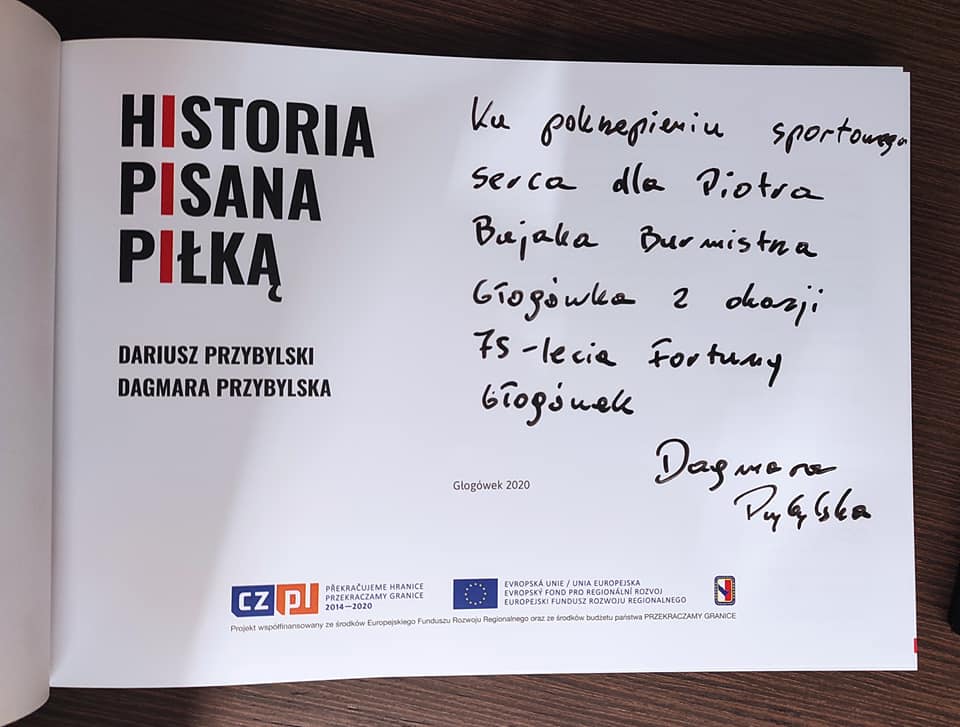 HISTORIA
PISANA
PIŁKĄ
DARIUSZ PRZYBYLSKI
DAGMARA PRZYBYLSKA
Ku pokrzepieniu sportowego
serca dla Piotra
Bujaka Burmistrza
Głogówka z okazji
75-lecia Fortuny
Głogówek
Dagmara
Przybylska
Głogówek 2020
cz pl
PŘEKRAČUJEME HRANICE
PRZEKRACZAMY GRANICE
2014—2020
EVROPSKÁ UNIE / UNIA EUROPEJSKA
EVROPSKÝ FOND PRO REGIONÁLNÍ ROZVOJ
EUROPEJSKI FUNDUSZ ROZWOJU REGIONALNEGO
Projekt współfinansowany ze środków Europejskiego Funduszu Rozwoju Regionalnego oraz ze środków budżetu państwa PRZEKRACZAMY GRANICE